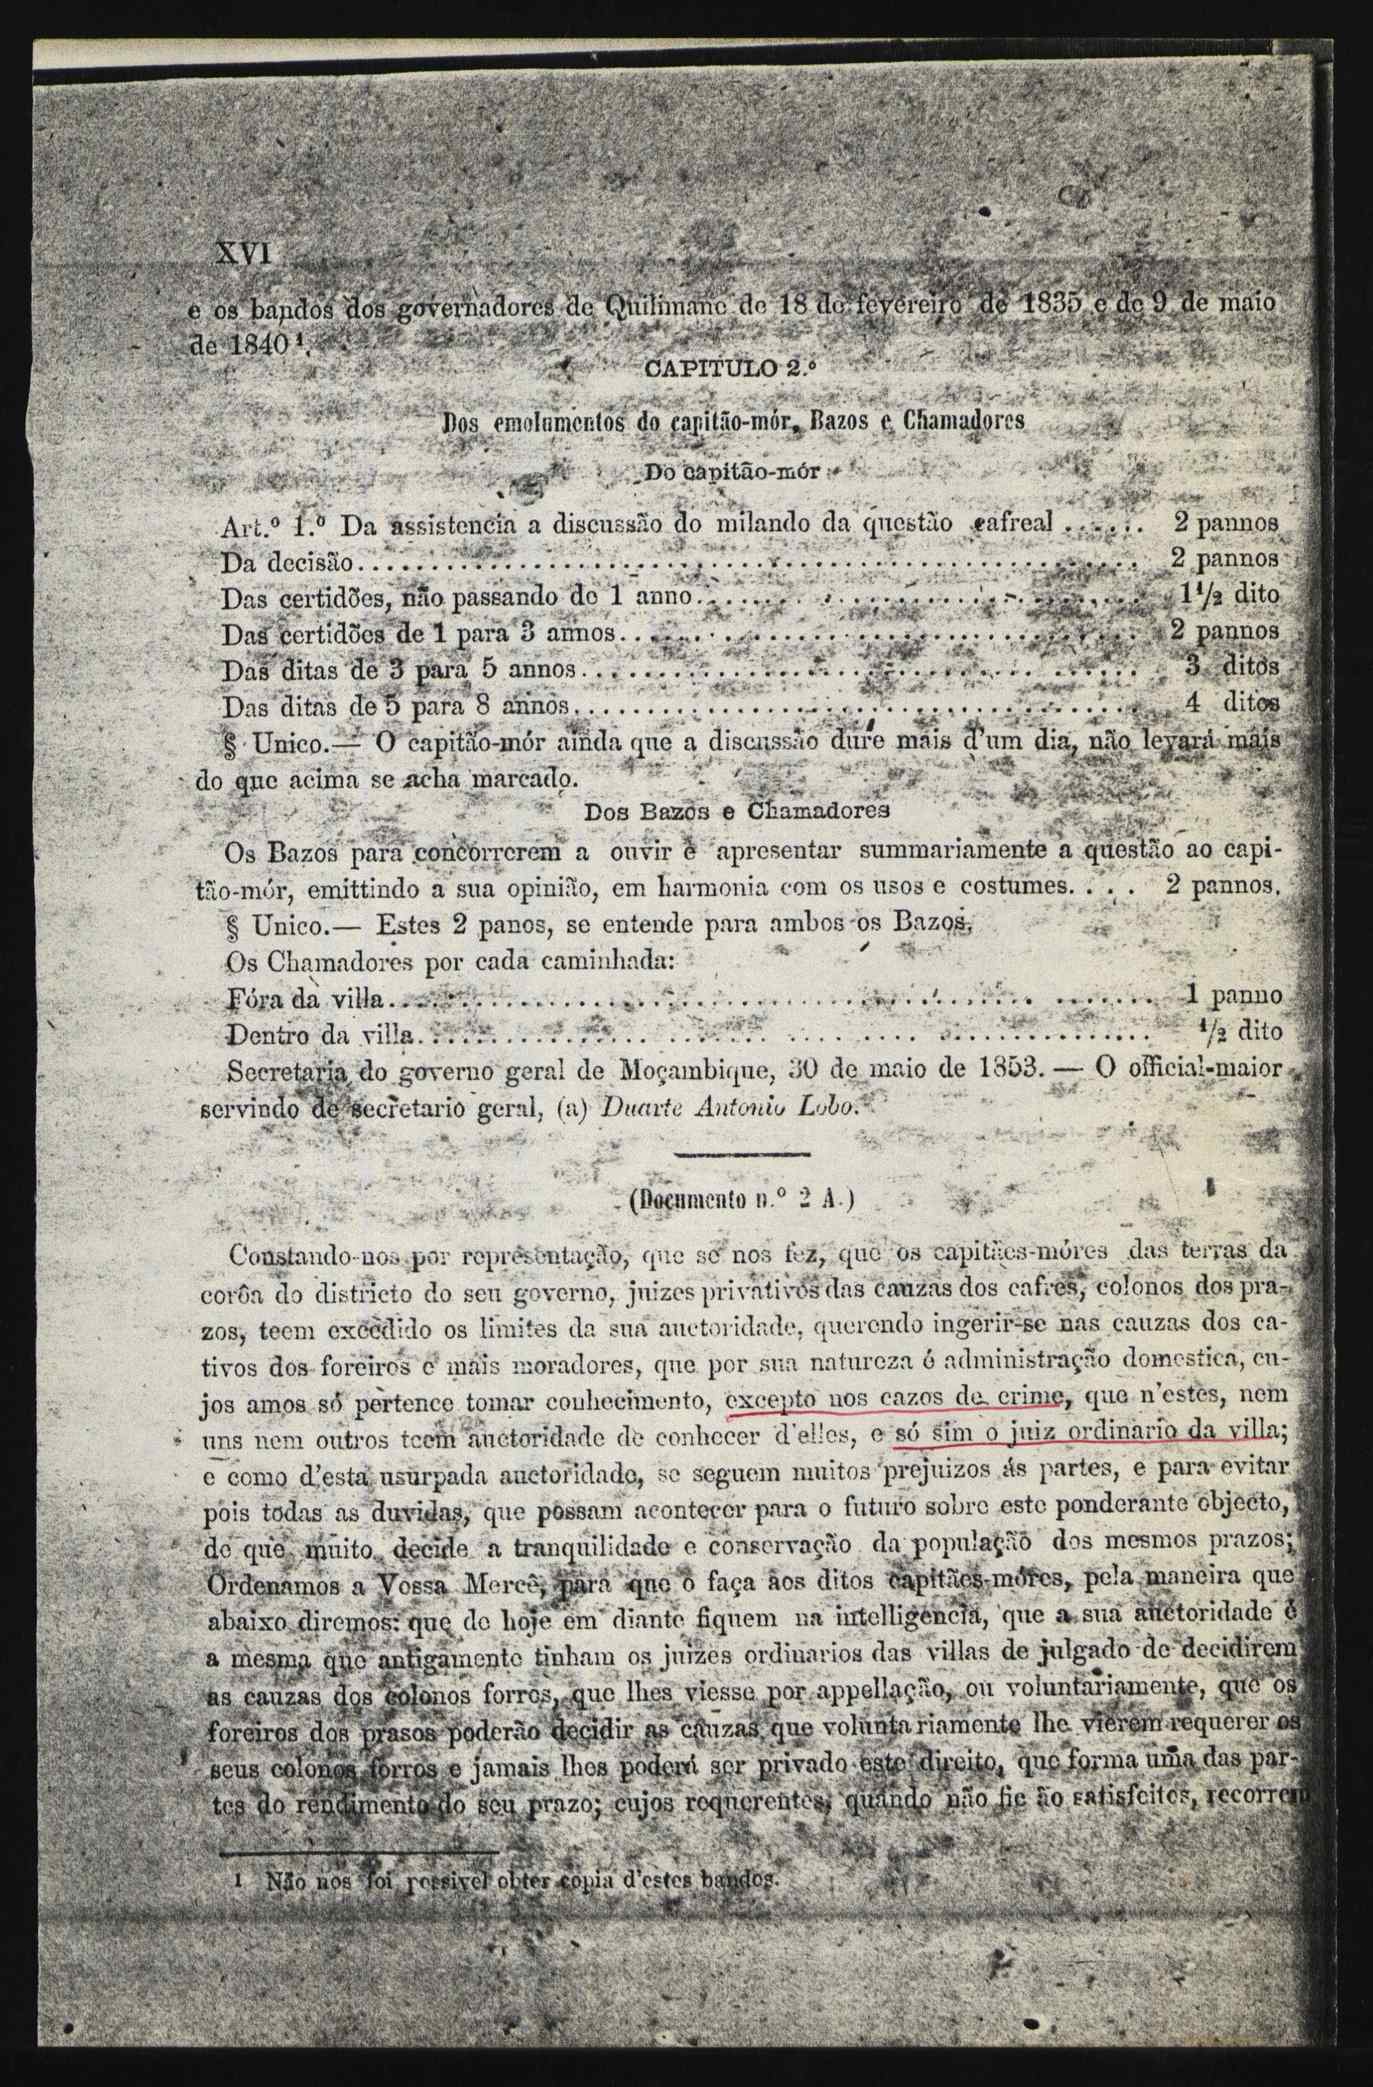 XVI
e os bandos dos governadores de Quilimane de 18 de fevereiro de 1835 e de 9 de maio
de 1840 ¹.
CAPITULO 2.º
Dos emolumentos do capitão-mór, Bazos e Chamadores
Do capitão-mór
Art.º 1.º Da assistencia a discussão do milando da questão cafreal ...... 2 pannos
Da decisão ...... 2 pannos
Das certidões, não passando de 1 anno ...... 1 1/2 dito
Das certidões de 1 para 3 annos ...... 2 pannos
Das ditas de 3 para 5 annos ...... 3 ditos
Das ditas de 5 para 8 annos ...... 4 ditos
§ Unico.— O capitão-mór ainda que a discussão dure mais d'um dia, não levará mais
do que acima se acha marcado.
Dos Bazos e Chamadores
Os Bazos para concorrerem a ouvir e apresentar summariamente a questão ao capi-
tão-mór, emittindo a sua opinião, em harmonia com os usos e costumes. . . . 2 pannos.
§ Unico.— Estes 2 panos, se entende para ambos os Bazos.
Os Chamadores por cada caminhada:
Fóra da villa ...... 1 panno
Dentro da villa ...... 1/2 dito
Secretaria do governo geral de Moçambique, 30 de maio de 1853. — O official-maior
servindo de secretario geral, (a) Duarte Antonio Lobo.
(Documento n.º 2 A.)
Constando-nos por representação, que se nos fez, que os capitães-móres das terras da
corôa do districto do seu governo, juizes privativos das cauzas dos cafres, colonos dos pra-
zos, teem excedido os limites da sua auctoridade, querendo ingerir-se nas cauzas dos ca-
tivos dos foreiros e mais moradores, que por sua natureza é administração domestica, cu-
jos amos só pertence tomar conhecimento, excepto nos cazos de crime, que n'estes, nem
uns nem outros teem auctoridade de conhecer d'elles, e só sim o juiz ordinario da villa;
e como d'esta usurpada auctoridade, se seguem muitos prejuizos ás partes, e para evitar
pois todas as duvidas, que possam acontecer para o futuro sobre este ponderante objecto,
de que muito decide a tranquilidade e conservação da população dos mesmos prazos;
Ordenamos a Vossa Mercê, para que o faça aos ditos capitães-móres, pela maneira que
abaixo diremos: que de hoje em diante fiquem na intelligencia, que a sua auctoridade é
a mesma que antigamente tinham os juizes ordinarios das villas de julgado de decidirem
as cauzas dos colonos forros, que lhes viesse por appellação, ou voluntariamente, que os
foreiros dos prasos poderão decidir as cauzas que voluntariamente lhe vierem requerer os
seus colonos forros e jamais lhes poderá ser privado este direito, que forma uma das par-
tes do rendimento do seu prazo; cujos requerentes, quando não fic ão satisfeitos, recorrem
1 Não nos foi possivel obter copia d'estes bandos.